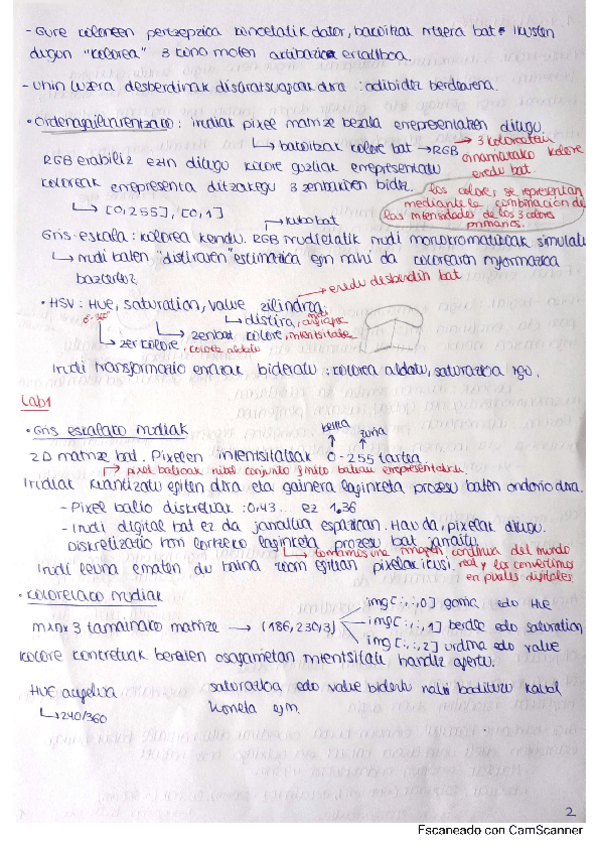 - Gure koloreen pertzepzioa kontzelatik dator, bakoitzak bat. Ikusten
dugun "kolorea" 3 kono moten aktibazioa
- Uhin luzera desberdinak : adibidez berdearena.
• Ordenagailuarentzako: irudiak pixel matrize bezala errepresentatzen ditugu.
↳ bakoitzak kolore bat → RGB → 3 koloreetako
oinarritako kolore
eredu bat.
RGB erabiliz ezin ditugu kolore guztiak errepresentatu
koloreak errepresenta ditzakegu 3 zenbakien bidez.
los colores se representan
mediante la combinación de
las intensidades de los 3 colores
primarios.
↳ [0,255], [0,1]
↳ kubo bat
Gris-eskala: kolorea kendu. RGB irudietatik irudi monokromatikoak simulatu
↳ irudi baten "distiraren" estimazioa egin nahi da kolorearen informazioa
baztertuz
→ eredu desberdin bat
• HSV: Hue, saturation, value zilindrea
0-360
↳ distira, argitasuna
↳ zenbat kolore, intentsitatea
↳ zer kolore, kolorea aldatu
Irudi transformazio errazak bideratu: kolorea aldatu, saturazioa igo.
Lab1
• Gris eskalako irudiak
beltza zuria
2D matrize bat. Pixelen intentsitateak 0-255 tartea.
→ pixel balioak conjunto finito batean errepresentatu
Irudiak kuantizatu egiten dira eta gainera laginketa prozesu baten ondorio dira.
- Pixel balio diskretuak: 0,43... ez 1,36
- Irudi digital bat ez da jarraitua espazioan. Hau da, pixelak ditugu.
Diskretizazio hori lortzeko laginketa prozesu bat jarraitu
↳ tomamos una imagen continua del mundo
real y las convertimos
en pixeles digitales
Irudi leuna ematen du baina zoom egitean pixelak ikusi.
• Koloretako irudiak
mxnx3 tamainako matrize → (186,230,3)
img[:,:,0] gorria edo Hue
img[:,:,1] berdea edo saturation
img[:,:,2] urdina edo value
kolore konkretuak beraien osagaietan intentsitate handiz agertu.
HUE
↳ 240/360
saturazioa edo value bidertu nahi baditugu
honela egin.
2
Escaneado con CamScanner